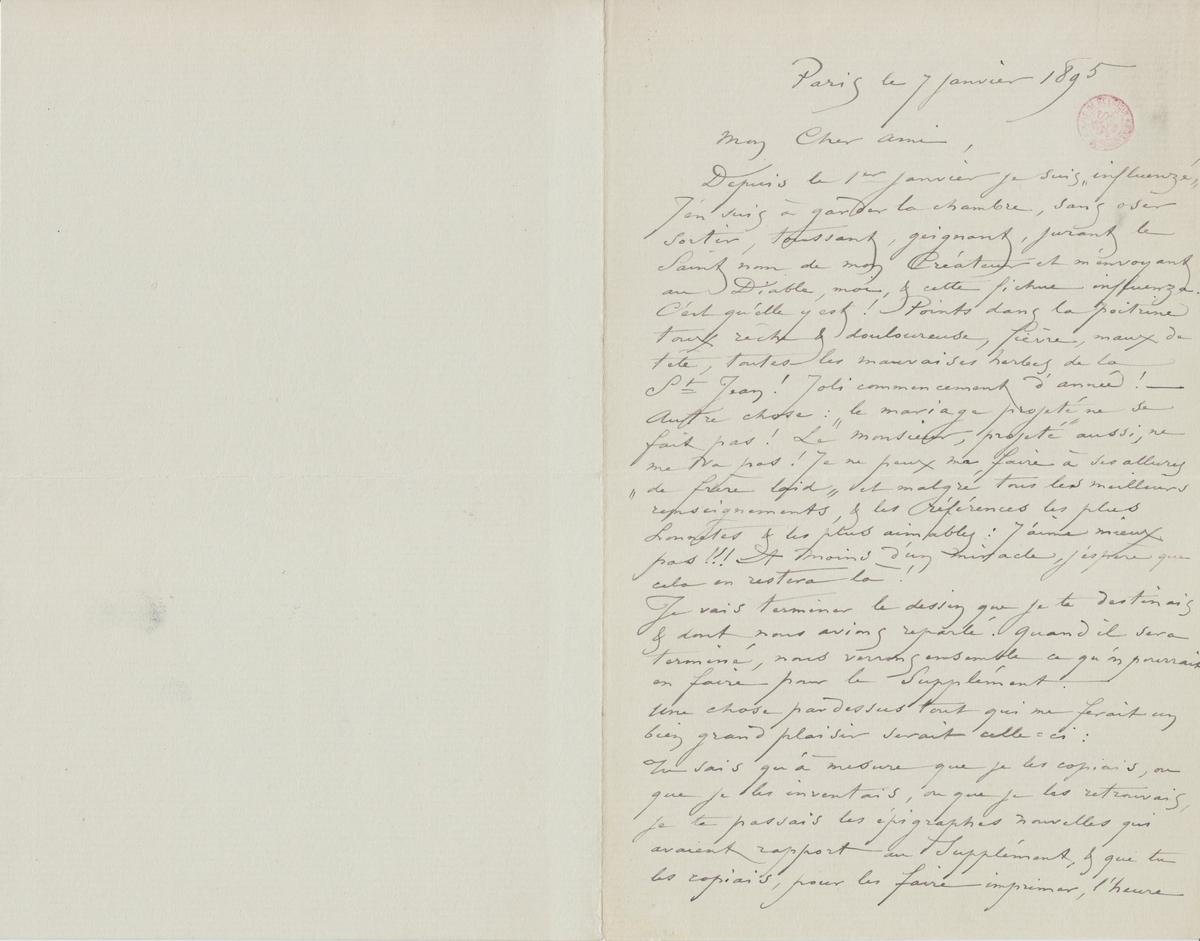 Paris le 7 janvier 1895
Mon Cher ami,
Depuis le 1er janvier je suis „influenzé„
J'en suis à garder la chambre, sans oser
sortir, toussant, geignant, jurant le
Saint nom de mon Créateur et m'envoyant
au Diable, moi, & cette fichue influenza.
C'est qu'elle y est ! Points dans la poitrine
toux rèche & douloureuse, fièvre, maux de
tête, toutes les mauvaises herbes de la
St Jean ! Joli commencement d'année ! —
Autre chose : „le mariage projeté„ ne se
fait pas ! Le „monsieur, projeté„ aussi, ne
me va pas ! Je ne peux me faire à ses allures
„de frère laid„ et malgré tous les meilleurs
renseignements, & les Références les plus
honnêtes & les plus aimables : J'aime mieux
pas !!! A moins d'un miracle, j'espère que
cela en restera là !
Je vais terminer le dessin que je te destinais
& dont nous avions reparlé. Quand il sera
terminé, nous verrons ensemble ce qu'on pourrait
en faire pour le Supplément.
Une chose pardessus tout qui me ferait un
bien grand plaisir serait celle=ci :
Tu sais qu'à mesure que je les copiais, ou
que je les inventais, ou que je les retrouvais,
je te passais les épigraphes nouvelles qui
avaient rapport au Supplément, & que tu
les copiais, pour les faire imprimer, l'heure